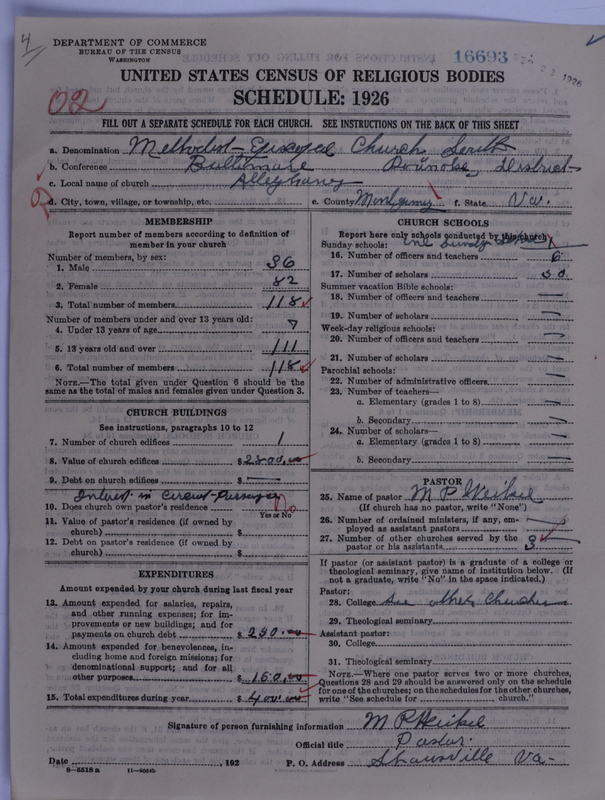 4
DEPARTMENT OF COMMERCE
BUREAU OF THE CENSUS
WASHINGTON
16693
UNITED STATES CENSUS OF RELIGIOUS BODIES
SCHEDULE: 1926
02
FILL OUT A SEPARATE SCHEDULE FOR EACH CHURCH. SEE INSTRUCTIONS ON THE BACK OF THIS SHEET
a. Denomination Methodist-Episcopal Church South
b. Conference Baltimore Roanoke, District
c. Local name of church Alleghany
d. City, town, village, or township, etc. e. County Montgomery f. State Va.
MEMBERSHIP
Report number of members according to definition of member in your church
Number of members, by sex:
1. Male 36
2. Female 82
3. Total number of members 118
Number of members under and over 13 years old:
4. Under 13 years of age 7
5. 13 years old and over 111
6. Total number of members 118
NOTE.—The total given under Question 6 should be the same as the total of males and females given under Question 3.
CHURCH BUILDINGS
See instructions, paragraphs 10 to 12
7. Number of church edifices 1
8. Value of church edifices $2500.00
9. Debt on church edifices $
Interest in Circuit-Parsonage
10. Does church own pastor's residence No
Yes or No
11. Value of pastor's residence (if owned by church) $
12. Debt on pastor's residence (if owned by church) $
EXPENDITURES
Amount expended by your church during last fiscal year
13. Amount expended for salaries, repairs, and other running expenses; for improvements or new buildings; and for payments on church debt $250.00
14. Amount expended for benevolences, including home and foreign missions; for denominational support; and for all other purposes $150.00
15. Total expenditures during year $400.00
CHURCH SCHOOLS
Report here only schools conducted by this church
Sunday schools: one Sunday
16. Number of officers and teachers 6
17. Number of scholars 50
Summer vacation Bible schools:
18. Number of officers and teachers
19. Number of scholars
Week-day religious schools:
20. Number of officers and teachers
21. Number of scholars
Parochial schools:
22. Number of administrative officers
23. Number of teachers—
a. Elementary (grades 1 to 8)
b. Secondary
24. Number of scholars—
a. Elementary (grades 1 to 8)
b. Secondary
PASTOR
25. Name of pastor M P Weikel
(If church has no pastor, write "None")
26. Number of ordained ministers, if any, employed as assistant pastors
27. Number of other churches served by the pastor or his assistants 3
If pastor (or assistant pastor) is a graduate of a college or theological seminary, give name of institution below. (If not a graduate, write "No" in the space indicated.)
Pastor:
28. College See other Churches
29. Theological seminary
Assistant pastor:
30. College
31. Theological seminary
NOTE.—Where one pastor serves two or more churches, Questions 28 and 29 should be answered only on the schedule for one of the churches; on the schedules for the other churches, write "See schedule for church."
Signature of person furnishing information M P Weikel
Official title Pastor
Date , 192 P. O. Address Shawsville Va-
8-5518 a